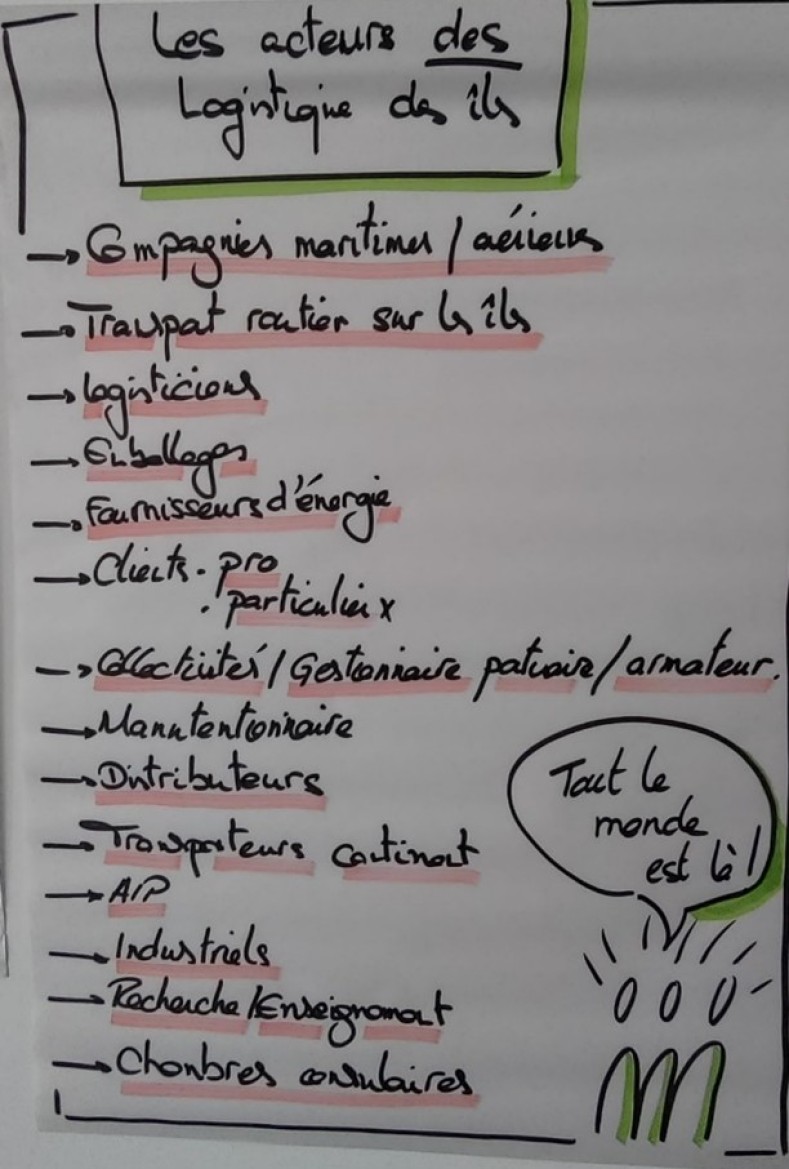 Les acteurs des
Logistique des îles
→ Compagnies maritimes / aériennes
→ Transport routier sur les îles
→ logisticiens
→ Emballages
→ Fournisseurs d'énergie
→ Clients . pro
. particulier x
→ Collectivités / Gestionnaire portuaire / armateur.
→ Manutentionnaire
→ Distributeurs
→ Transporteurs continent
→ AIP
→ Industriels
→ Recherche / Enseignement
→ Chambres consulaires
Tout le
monde
est là !